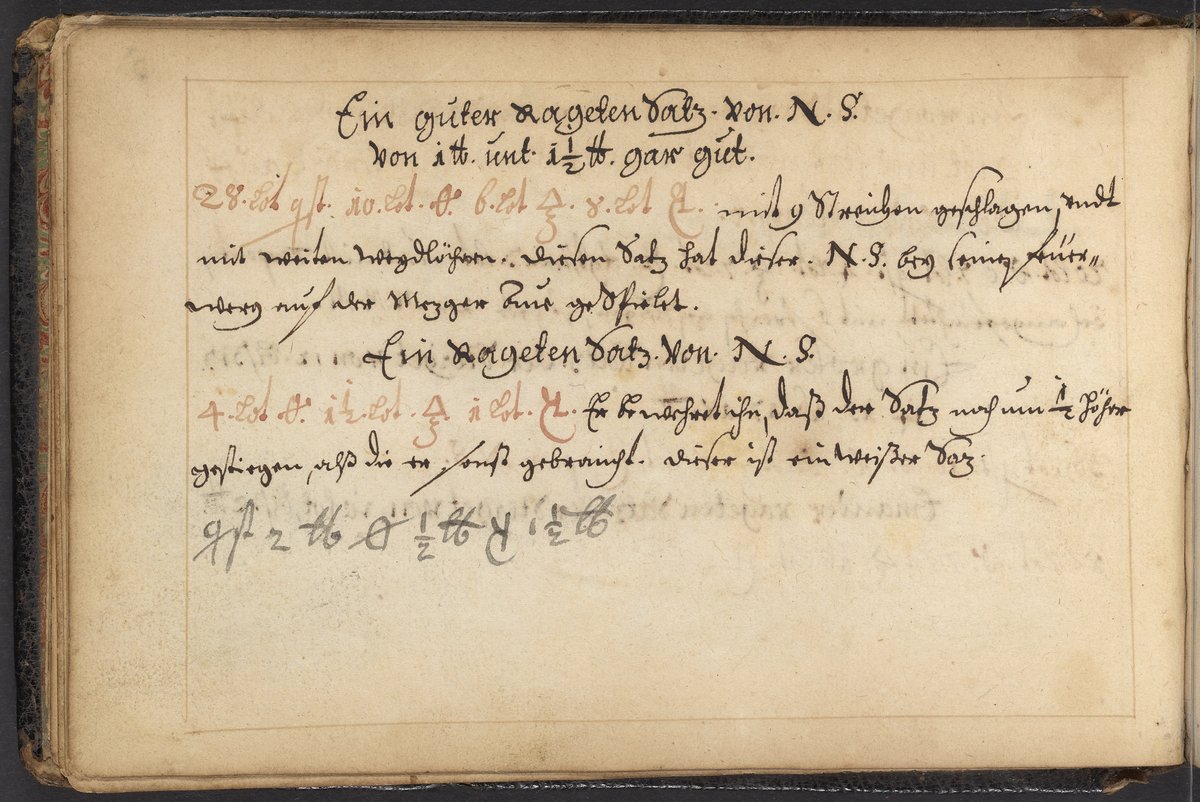 Ein guter Rageten Satz. Von. N. S.
Von 1 ℔. unt. 1½ ℔. gar gut.
28. lot 10. lot. 6. lot 8. lot mit 9 Streichen geschlagen, undt
mit weiten diesen Satz hat dieser. N. S. bey seinem feuer=
werg auf der Mezger Aue geSpielet.
Ein Rageten Satz. Von. N. S.
4. lot 1½. lot. 1 lot. Er bewehret ihn, daß der Satz noch um ½ höher
gestiegen, alß die er sonst gebraucht. dieser ist ein weißer Saz.
2 ℔ ½ ℔ 1½ ℔